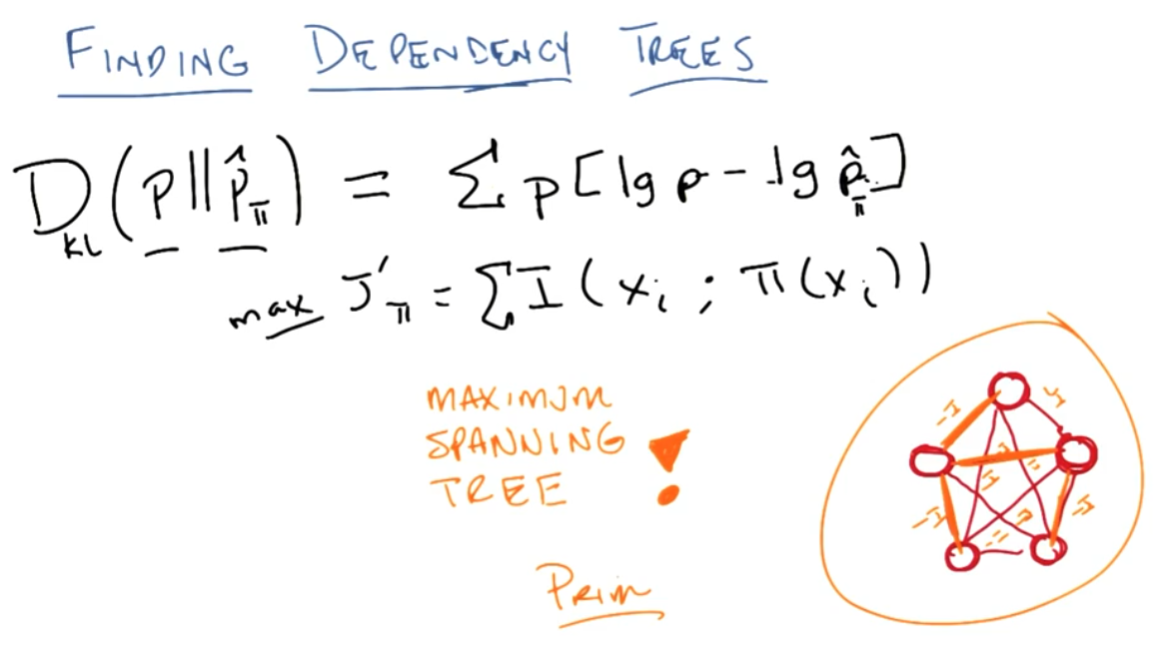 FINDING DEPENDENCY TREES
D_KL(p||p̂_π) = Σ p[lg p - lg p̂_π]
max J'_π = Σ I(x_i ; π(x_i))
MAXIMUM
SPANNING
TREE !
-I
-I
-I
Prim